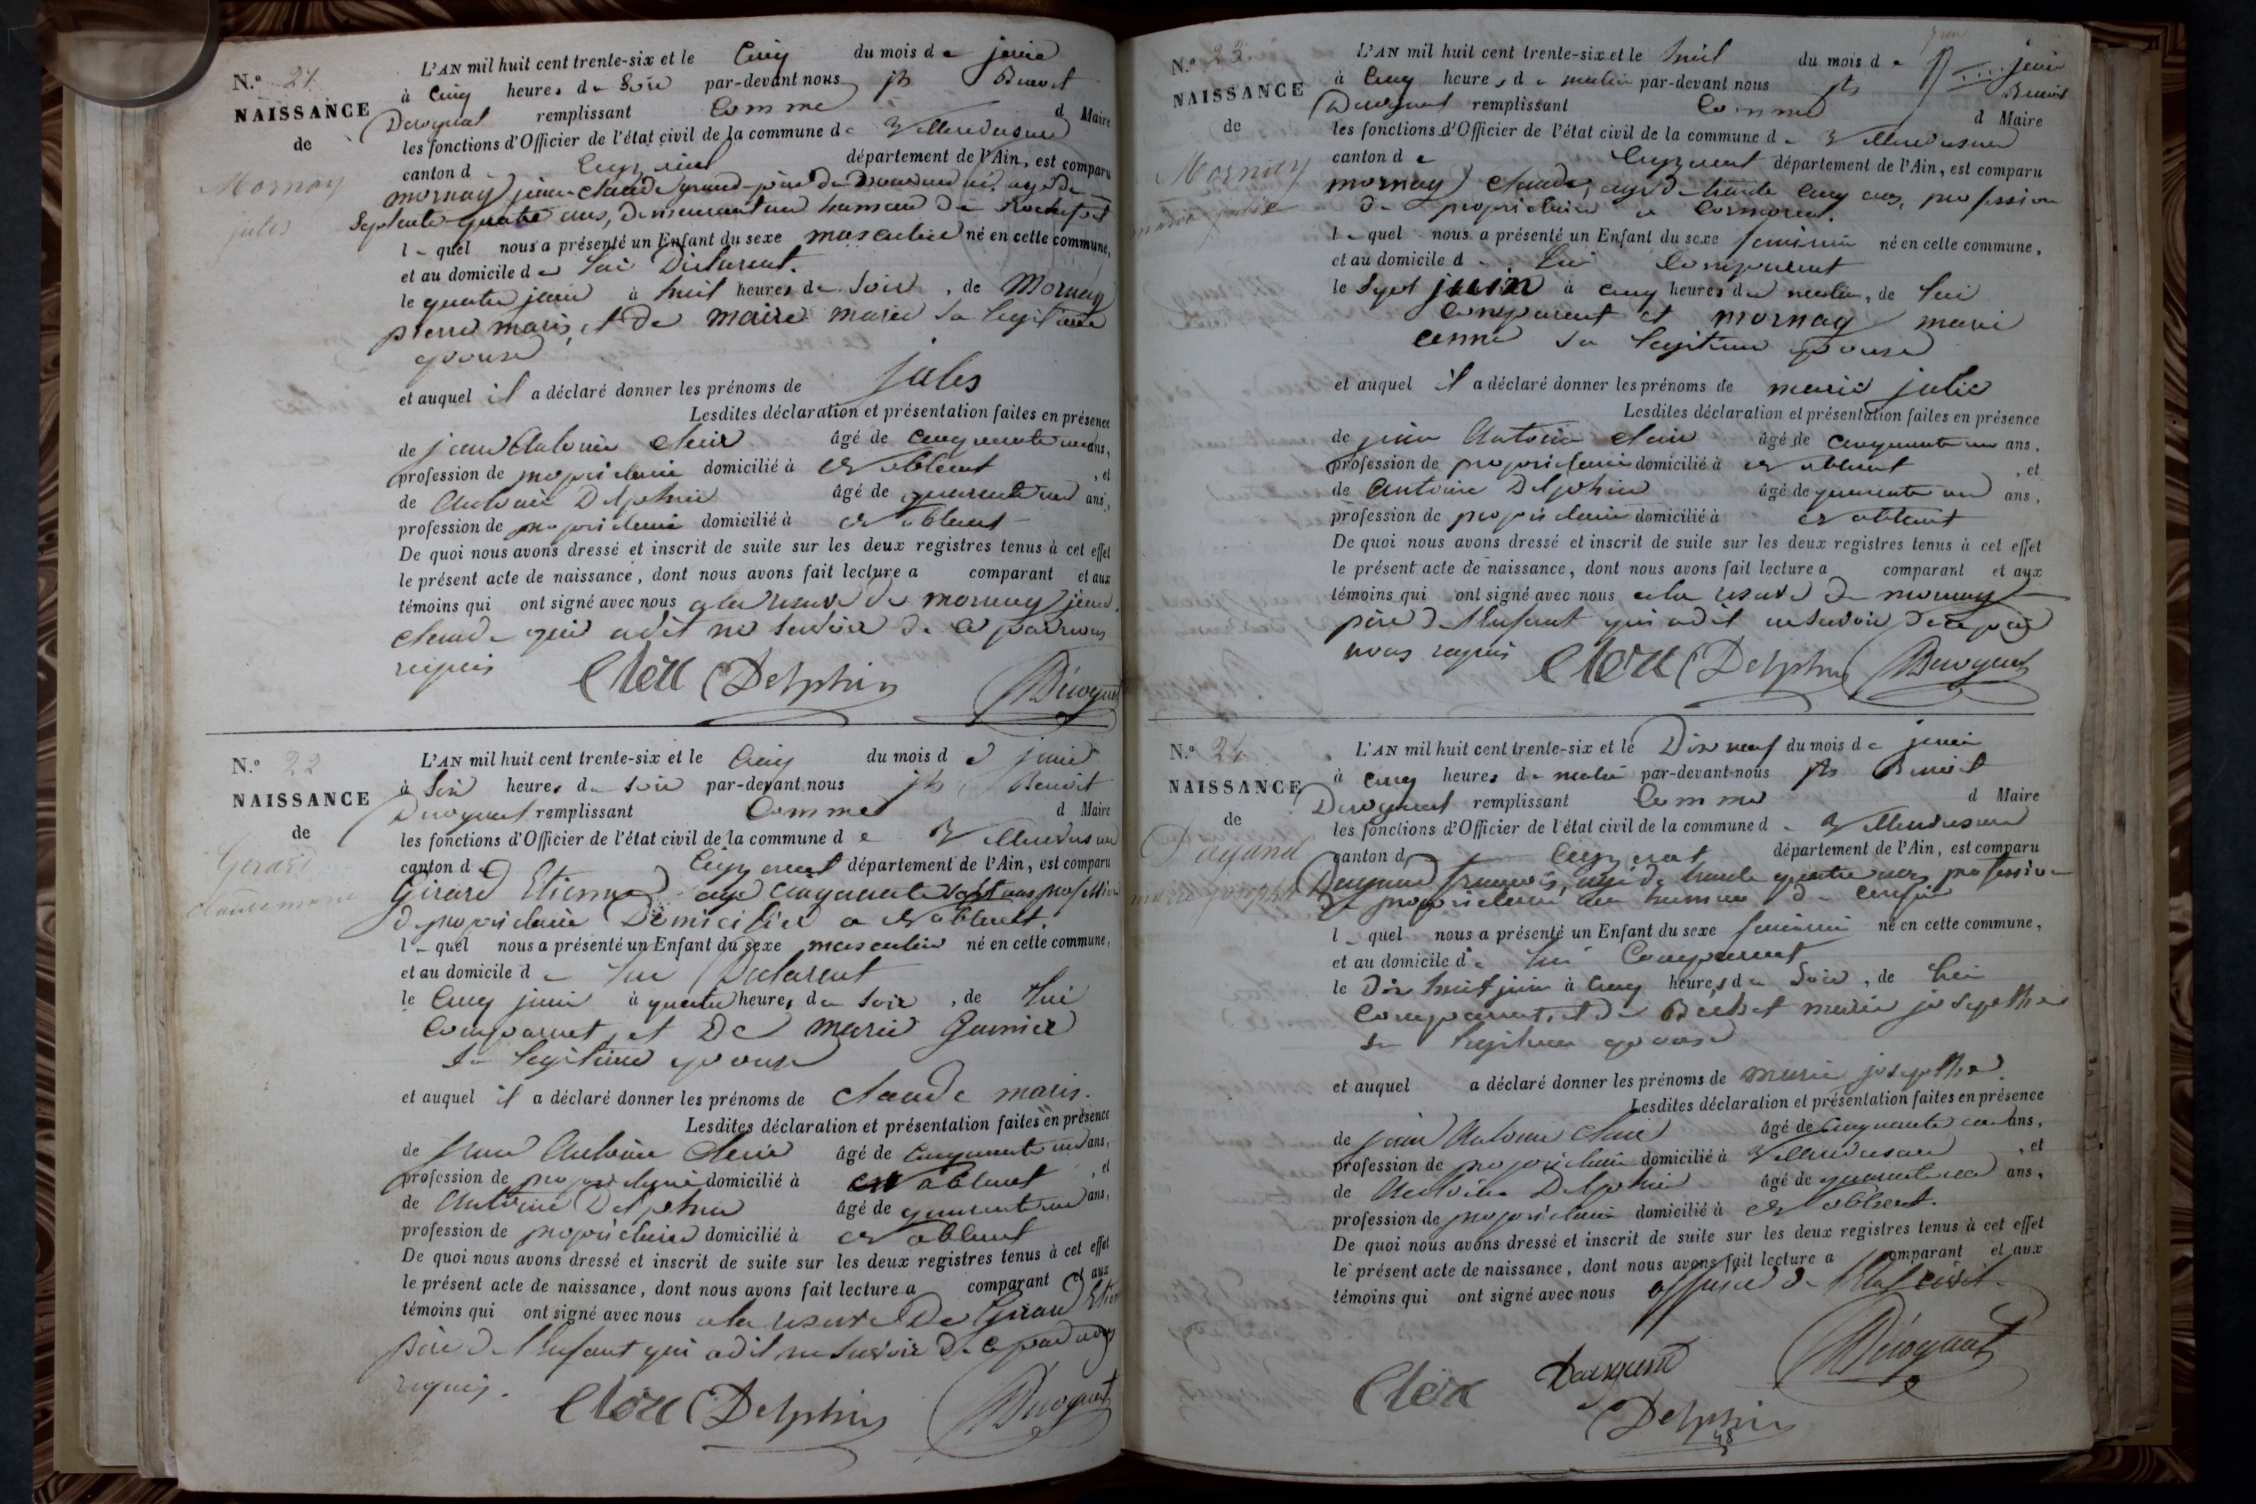 N.º 21
NAISSANCE
de
Mornay
jules
L'AN mil huit cent trente-six et le Cinq du mois de juin
à Cinq heures de Soir par-devant nous jh Benoit
Decognat remplissant Comme d Maire
les fonctions d'Officier de l'état civil de la commune de Villereversure
canton d Ceyzeriat département de l'Ain, est comparu
mornay jean Claude grand-père du nouveau né, agé de
Septante quatre ans, demeurant au hameau de Rochefort
l e quel nous a présenté un Enfant du sexe masculin né en cette commune,
et au domicile de lui Déclarant.
le quatre juin à huit heures de Soir, de Mornay
pierre marie, et de maire marie Sa legitime
epouse
et auquel il a déclaré donner les prénoms de jules
Lesdites déclaration et présentation faites en présence
de jean Antoine Clair âgé de Cinquante un ans,
profession de proprietaire domicilié à , et
de Antoine Delphin âgé de quarante un ans,
profession de proprietaire domicilié à
De quoi nous avons dressé et inscrit de suite sur les deux registres tenus à cet effet
le présent acte de naissance, dont nous avons fait lecture a comparant et aux
témoins qui ont signé avec nous a la reserve de mornay jean
Claude qui a dit ne Savoir de ce par nous
requis
Cleir Delphin Decognat
N.º 22
NAISSANCE
de
Gerard
Claude marie
L'AN mil huit cent trente-six et le Cinq du mois de juin
à Six heures du Soir par-devant nous jh Benoit
Decognat remplissant Comme d Maire
les fonctions d'Officier de l'état civil de la commune de Villereversure
canton de Ceyzeriat département de l'Ain, est comparu
Girard Etienne agé cinquante Sept ans profession
de proprietaire Domicilié a
l e quel nous a présenté un Enfant du sexe masculin né en cette commune,
et au domicile de lui Déclarent
le Cinq juin à quatre heures du Soir, de lui
Comparant, et De marie Garnier
Sa legitime epouse
et auquel il a déclaré donner les prénoms de Claude marie.
Lesdites déclaration et présentation faites en présence
de Jean Antoine Clair âgé de Cinquante un ans,
profession de proprietaire domicilié à , et
de Antoine Delphin âgé de quarante un ans,
profession de proprietaire domicilié à
De quoi nous avons dressé et inscrit de suite sur les deux registres tenus à cet effet
le présent acte de naissance, dont nous avons fait lecture a comparant et aux
témoins qui ont signé avec nous a la reserve De Girard
père de l'Enfant qui a dit ne Savoir de ce par nous
requis.
Cleir Delphin Decognat
N.º 23
NAISSANCE
de
Mornay
marie julie
L'AN mil huit cent trente-six et le huit du mois de juin
à Cinq heures de matin par-devant nous jh Benoit
Decognat remplissant Comme d Maire
les fonctions d'Officier de l'état civil de la commune de Villereversure
canton de Ceyzeriat département de l'Ain, est comparu
mornay Claude, agé de trente Cinq ans, profession
de proprietaire a Cormoreat.
l e quel nous a présenté un Enfant du sexe feminin né en cette commune,
et au domicile de lui Comparent
le Sept juin à cinq heures du matin, de lui
Comparent et mornay marie
anne Sa legitime epouse
et auquel il a déclaré donner les prénoms de marie julie
Lesdites déclaration et présentation faites en présence
de jean Antoine Clair âgé de cinquante un ans,
profession de proprietaire domicilié à , et
de Antoine Delphin âgé de quarante un ans,
profession de proprietaire domicilié à
De quoi nous avons dressé et inscrit de suite sur les deux registres tenus à cet effet
le présent acte de naissance, dont nous avons fait lecture a comparant et aux
témoins qui ont signé avec nous a la reserve de mornay
père de l'Enfant qui a dit ne Savoir de ce par
nous requis Cleir Delphin Decognat
N.º 24
NAISSANCE
de
Dagand
marie josephte
L'AN mil huit cent trente-six et le Dix neuf du mois de juin
à cinq heures de matin par-devant nous jh Benoit
Decognat remplissant Comme d Maire
les fonctions d'Officier de l'état civil de la commune de Villereversure
canton d Ceyzeriat département de l'Ain, est comparu
françois, agé de trente quatre ans profession
de proprietaire au hameau de
l e quel nous a présenté un Enfant du sexe feminin né en cette commune,
et au domicile de lui Comparent
le Dix huit juin à Cinq heures du Soir, de lui
Comparent, et de marie josepthe
Sa legitime epouse
et auquel a déclaré donner les prénoms de marie josepthe.
Lesdites déclaration et présentation faites en présence
de jean Antoine Clair âgé de Cinquante un ans,
profession de proprietaire domicilié à Villereversure , et
de Antoine Delphin âgé de quarante un ans,
profession de proprietaire domicilié à
De quoi nous avons dressé et inscrit de suite sur les deux registres tenus à cet effet
le présent acte de naissance, dont nous avons fait lecture a comparant et aux
témoins qui ont signé avec nous officier de l'Etat civil.
Cleir Decognat
Delphin